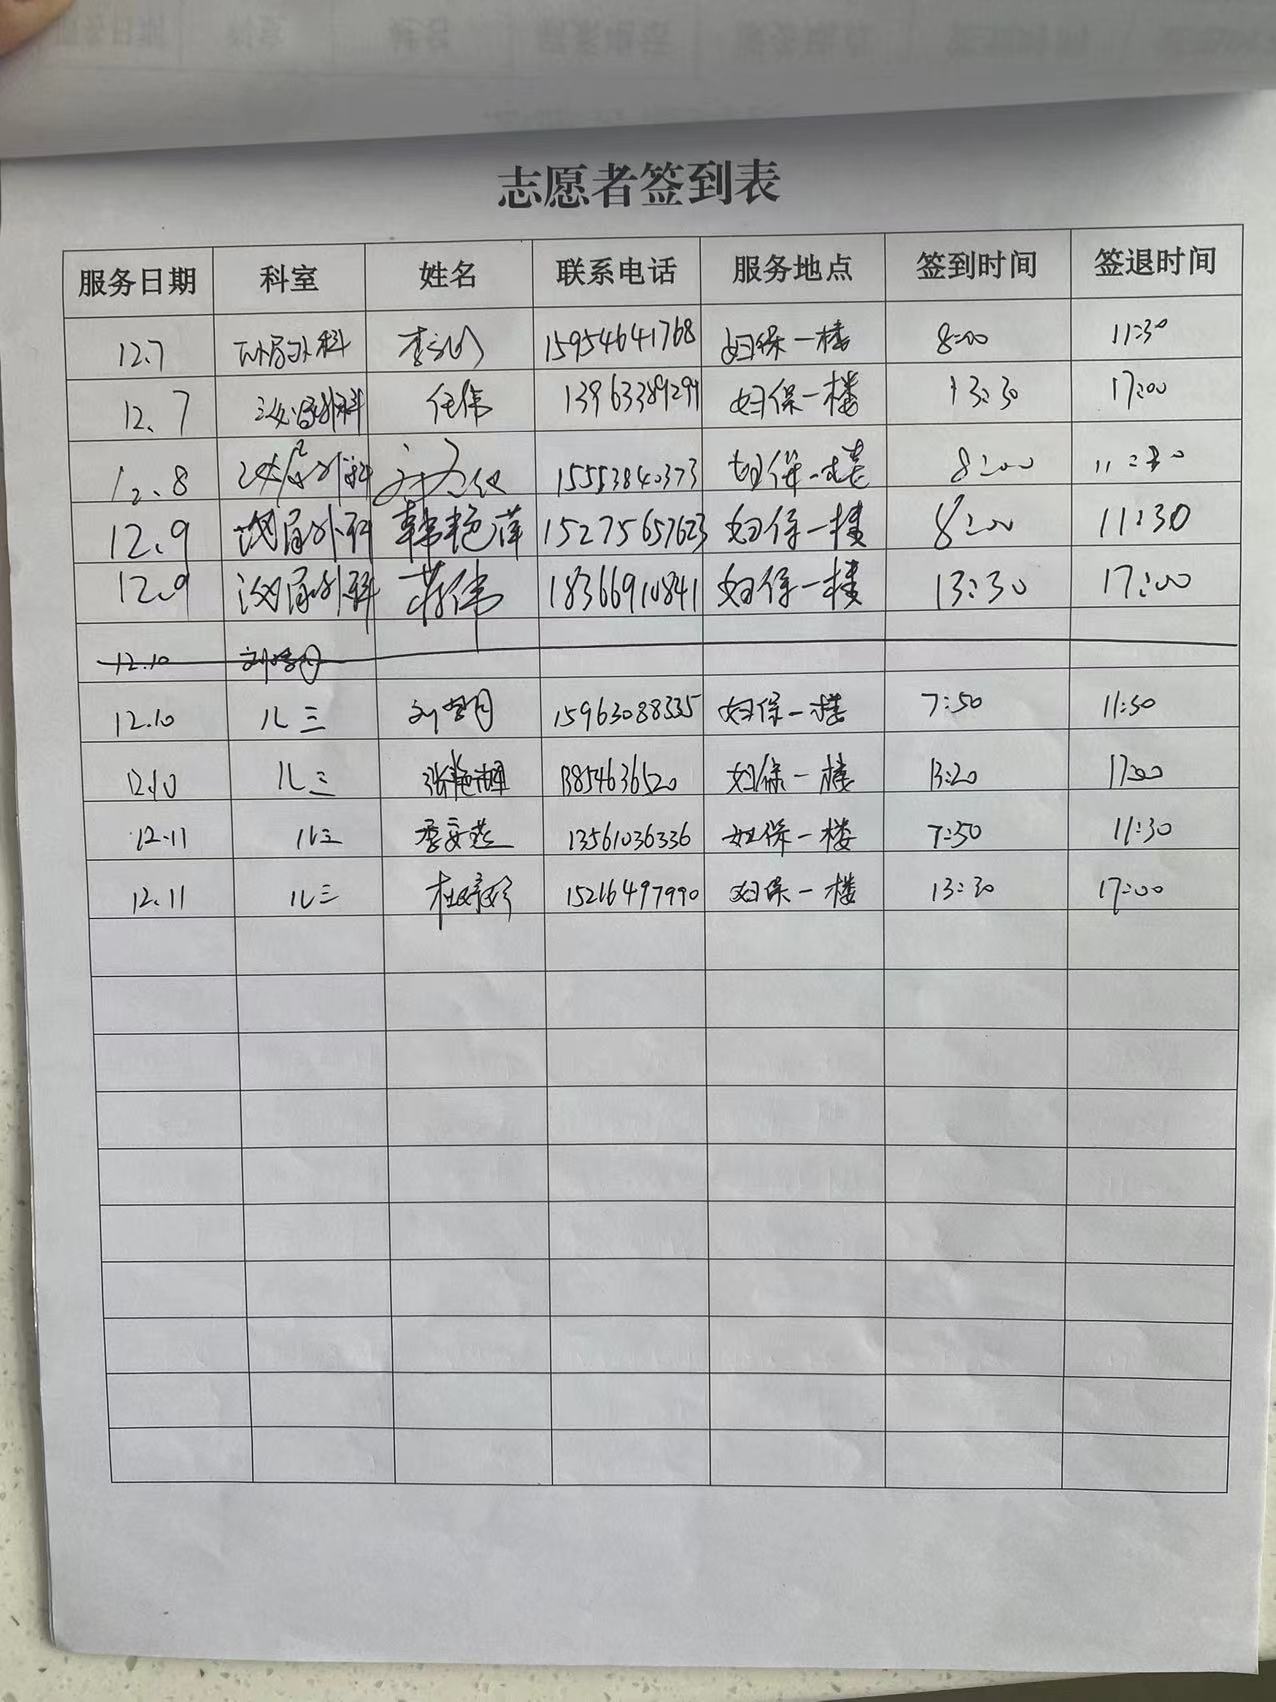 志愿者签到表
服务日期 科室 姓名 联系电话 服务地点 签到时间 签退时间
12.7 泌尿外科 15954641768 妇保一楼 8:00 11:30
12.7 泌尿外科 任伟 13963389299 妇保一楼 13:30 17:00
12.8 泌尿外科 15553840373 妇保一楼 8:00 11:30
12.9 泌尿外科 韩艳萍 15275657623 妇保一楼 8:00 11:30
12.9 泌尿外科 蒋伟 18366910841 妇保一楼 13:30 17:00
12.10
12.10 儿三 15963088335 妇保一楼 7:50 11:30
12.10 儿三 13854636520 妇保一楼 13:20 17:00
12.11 儿三 13561036336 妇保一楼 7:50 11:30
12.11 儿三 15216497990 妇保一楼 13:30 17:00